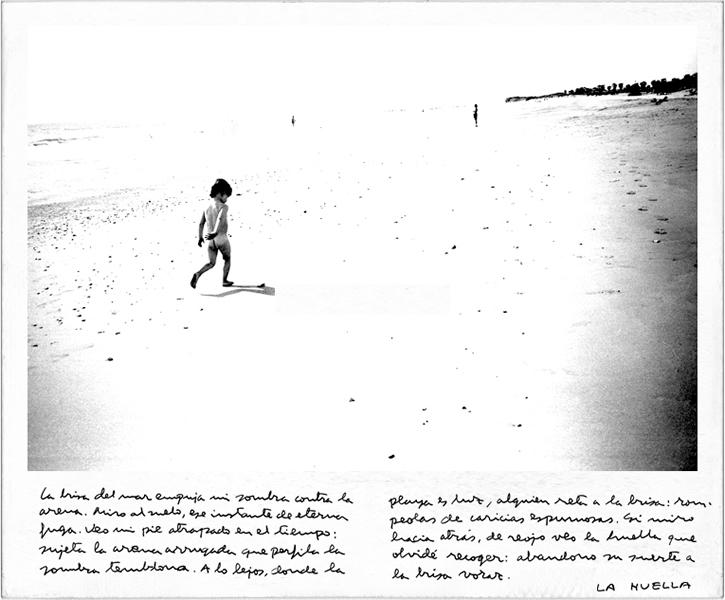 La brisa del mar empuja mi sombra contra la
arena. Miro al suelo, ese instante de eterna
fuga. Veo mi pie atrapado en el tiempo:
sujeta la arena arrugada que perfila la
sombra temblona. A lo lejos, donde la
playa es luz, alguien reta a la brisa: rom-
peolas de caricias espumosas. Si miro
hacia atrás, de reojo veo la huella que
olvidé recoger: abandono su suerte a
la brisa voraz.
LA HUELLA